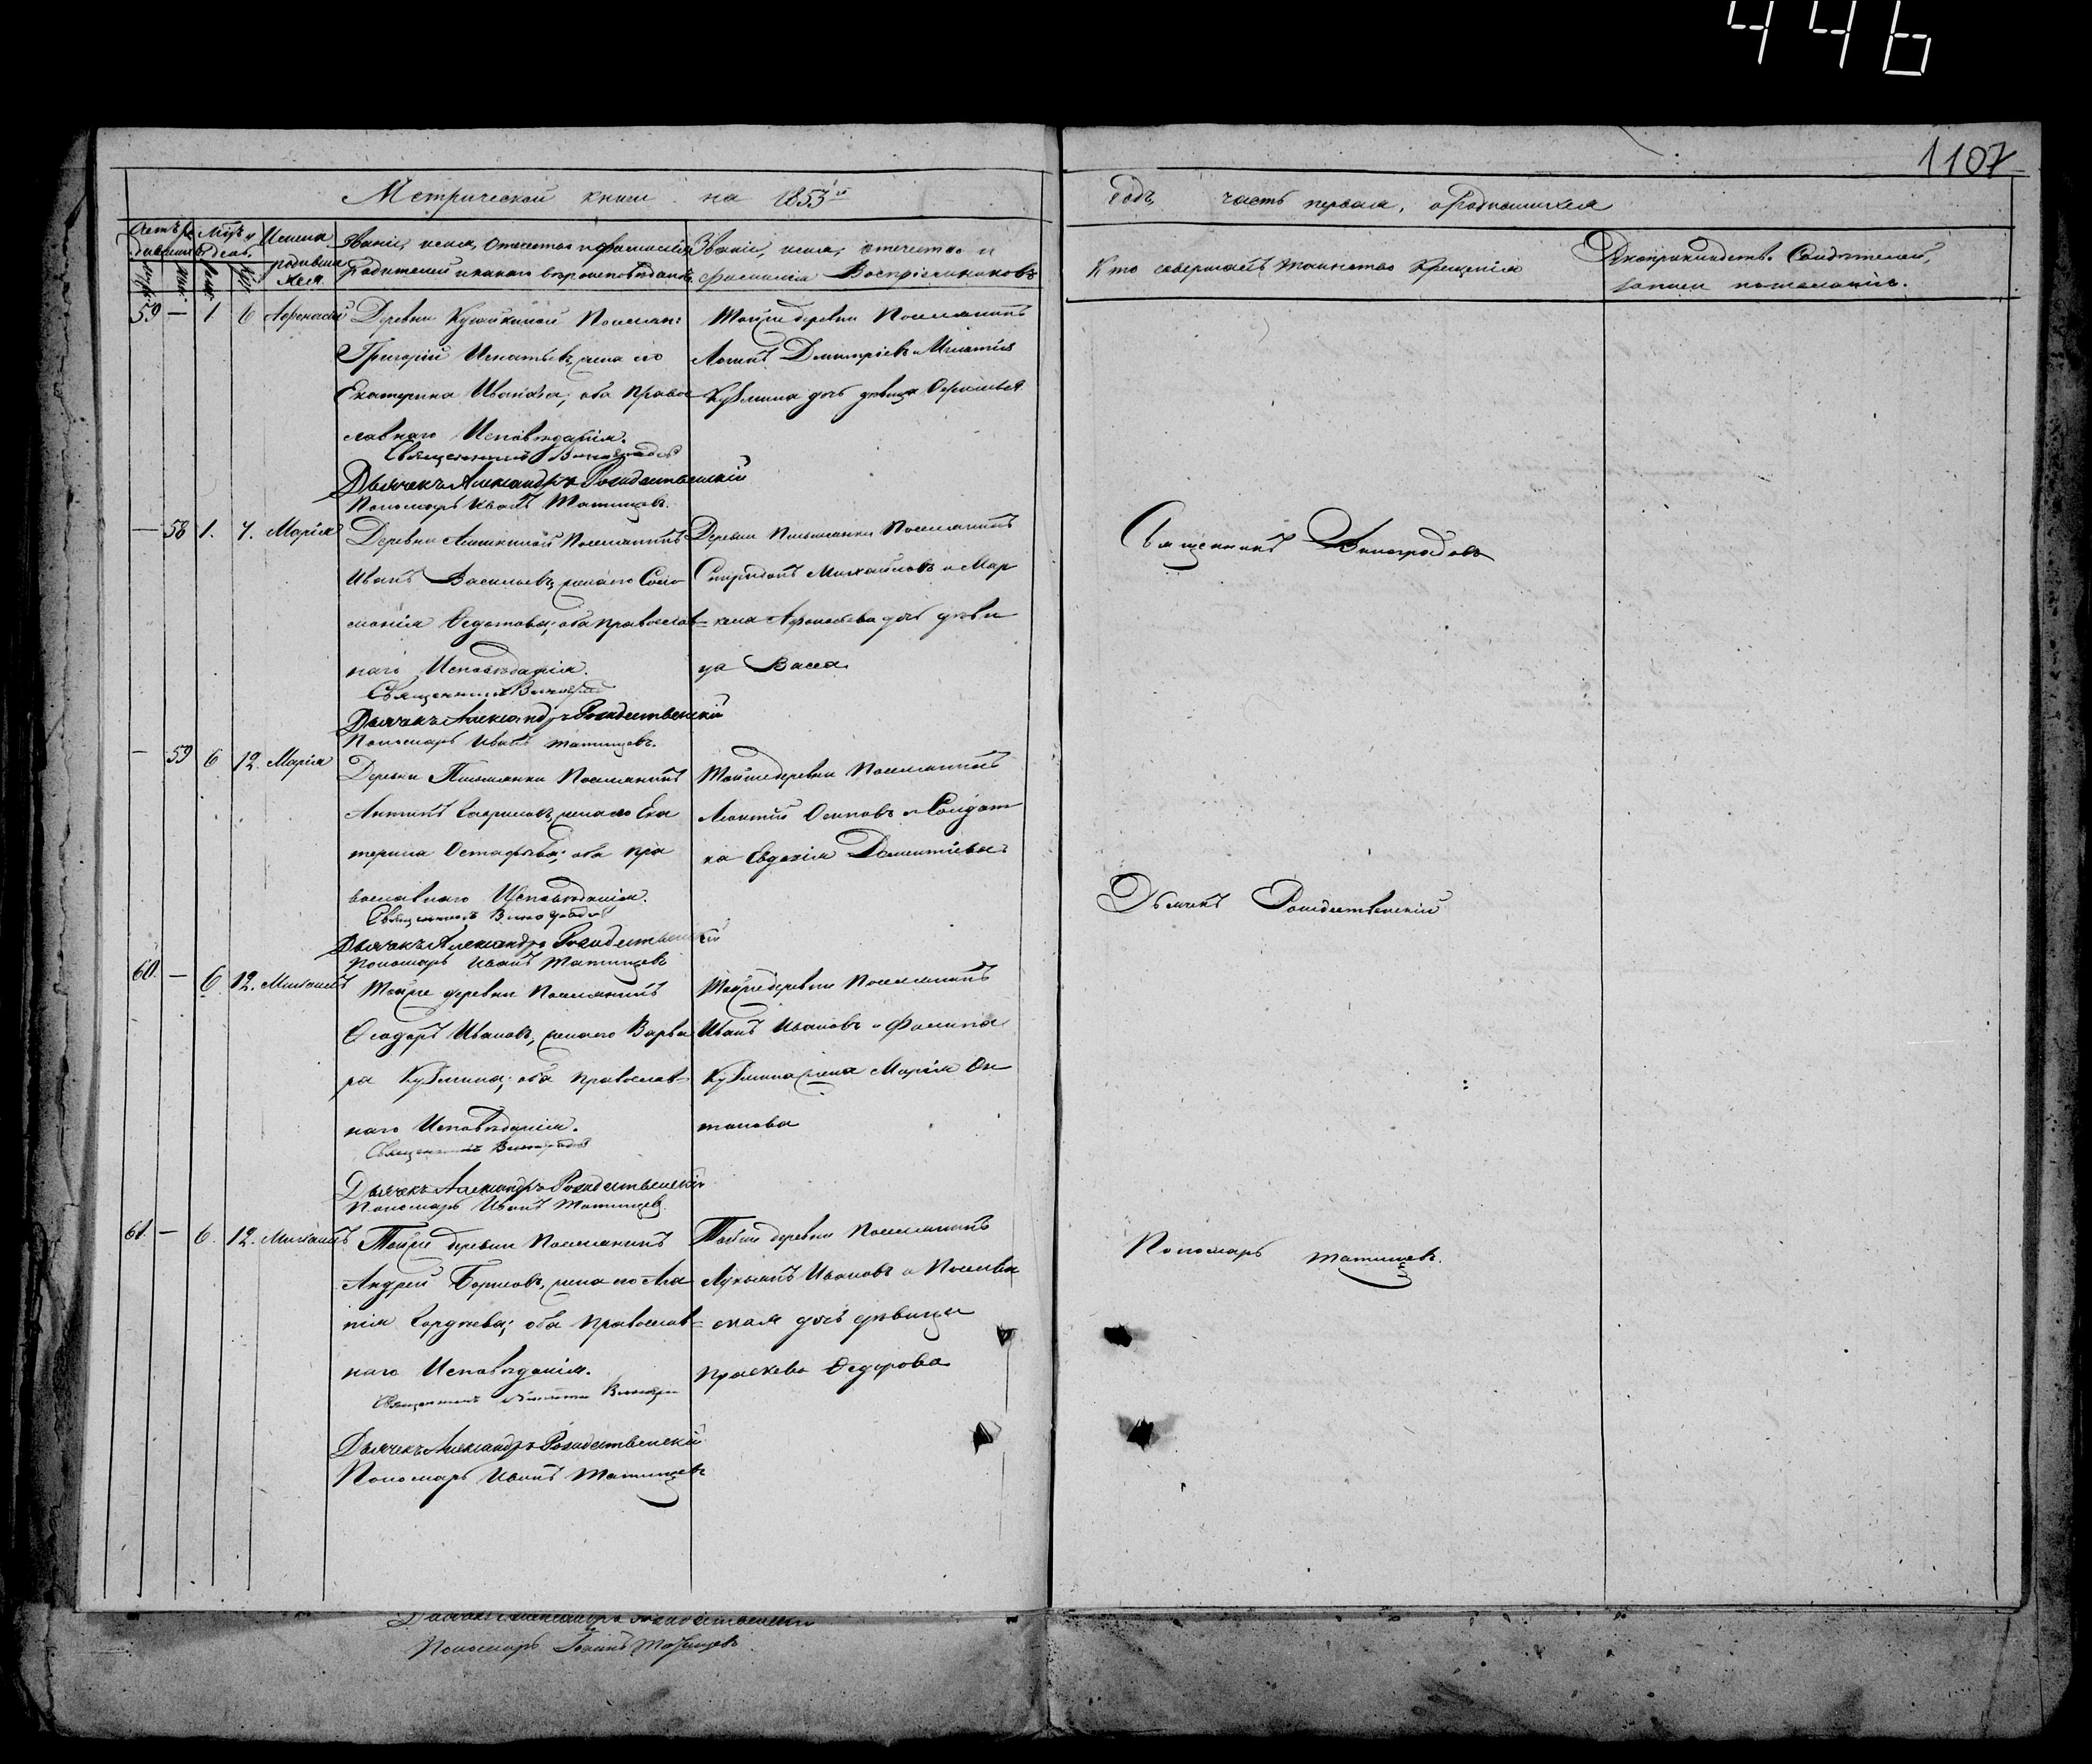 446
1107
Метрической книги на 1853й
годъ часть первая, о родившихся
Имена родившихся
Званіе, имя, отечество и фамилія родителей и какого вѣроисповѣданія
Званіе, имя, отечество и фамилія Воспріемниковъ
Кто совершалъ таинство крещенія
Рукоприкладство Свидѣтелей записи по желанію.
59 — 1 6 Афанасій
Деревни Поселян:
Григорій Игнатьевъ, жена его
Екатерина Иванова; оба Право
славнаго Исповѣданія.
Священникъ Виноградовъ
Дьячекъ Александръ Рождественскій
Пономарь Иванъ Татищевъ.
Тойже деревни Поселянинъ
Логинъ Дмитріевъ и Игнатія
Кузмина дочь дѣвица
— 58 1. 7. Марія
Деревни Поселянинъ
Иванъ Васильевъ, жена его Соло
монія Федотова; оба православ=
наго Исповѣданія.
Священникъ Виноградовъ
Дьячекъ Александръ Рождественскій
Пономарь Иванъ Татищевъ.
Деревни Письмянки Поселянинъ
Спиридонъ Михайловъ и Мар
кела Афанасьева дочь дѣви
ца Васса.
— 59 6 12. Марія
Деревни Письмянки Поселянинъ
Антипъ Гавриловъ, жена его Ека
терина Остафьева; оба пра
вославнаго Исповѣданія.
Священникъ Виноградовъ
Дьячекъ Александръ Рождественскій
Пономарь Иванъ Татищевъ
Тойже деревни Поселянинъ
Леонтій Осиповъ и Солдат
ка Евдокія Дементіева
60. — 6 12. Михаилъ
Тойже деревни Поселянинъ
Ѳеодоръ Ивановъ, жена его Варва
ра Кузмина; оба православ=
наго Исповѣданія.
Священникъ Виноградовъ
Дьячекъ Александръ Рождественскій
Пономарь Иванъ Татищевъ.
Тойже деревни Поселянинъ
Иванъ Ивановъ и Филипа
Кузмина жена Марія Ан
тонова
61. — 6. 12. Михаилъ
Тойже деревни Поселянинъ
Андрей Борисовъ, жена его Ага
пія Гордѣева; оба православ=
наго Исповѣданія.
Священникъ
Дьячекъ Александръ Рождественскій
Пономарь Иванъ Татищевъ
Тойже деревни Поселянинъ
Лукьянъ Ивановъ и Поселян
ская дочь дѣвица
Праскева Ѳедорова
Священникъ Виноградовъ
Дьячекъ Рождественскій
Пономарь Татищевъ.
Дьячекъ Александръ Рождественскій
Пономарь Іоаннъ Татищевъ.